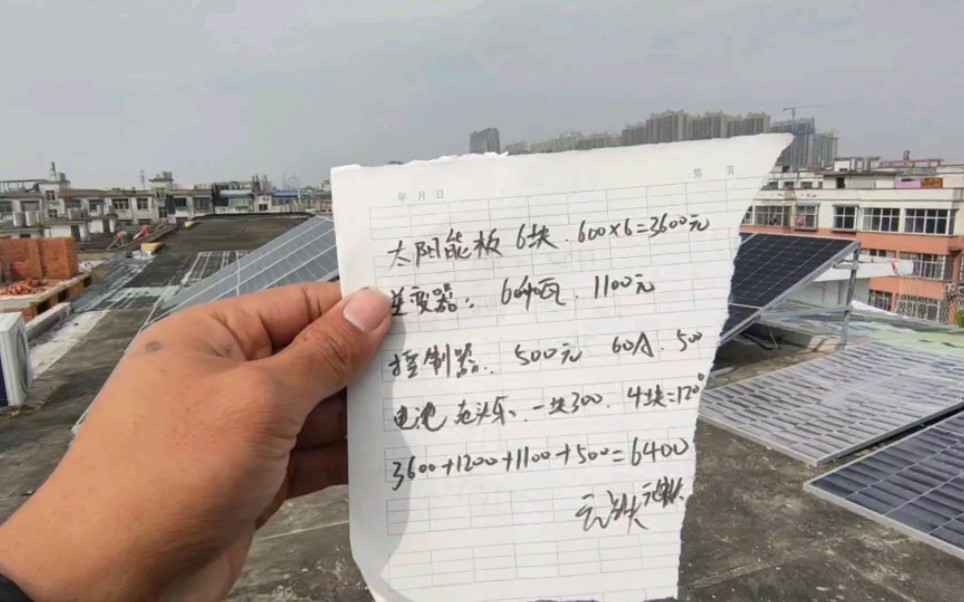 年 月 日
第 页
太阳能板 6块. 600×6=3600元
逆变器: 60 瓦. 1100元
控制器: 500元 60A. 500
电池 一块300. 4块=1200
3600+1200+1100+500=6400